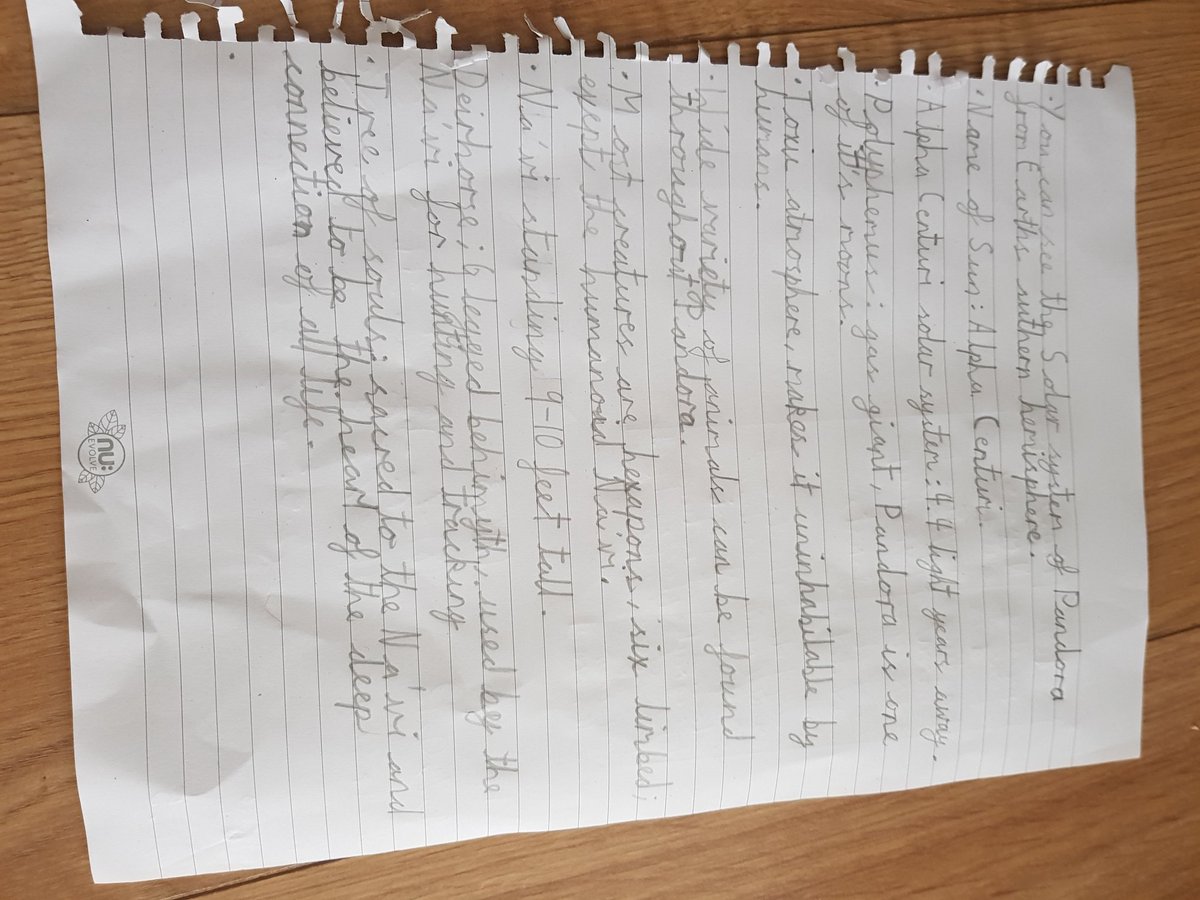 · You can see the Solar system of Pandora
from Earths suthern hemisphere.
· Name of Sun: Alpha Centuri.
· Alpha Centuri solar system: 4.4 light years away.
· Polyphemus: gas giant, Pandora is one
of it's moons.
· Toxic atmosphere, makes it uninhabitable by
humans.
· Wide variety of animals can be found
throughout Pandora.
· Most creatures are hexapons, six limbed;
exept the humanoid Na'vi.
· Na'vi standing 9-10 feet tall.
Deirhorse; 6 legged behimyth, used by the
Na'vi for hunting and tracking
· Tree of souls: sacred to the Na'vi and
believed to be the heart of the deep
connection of all life.
·
nu:
EVOLVE